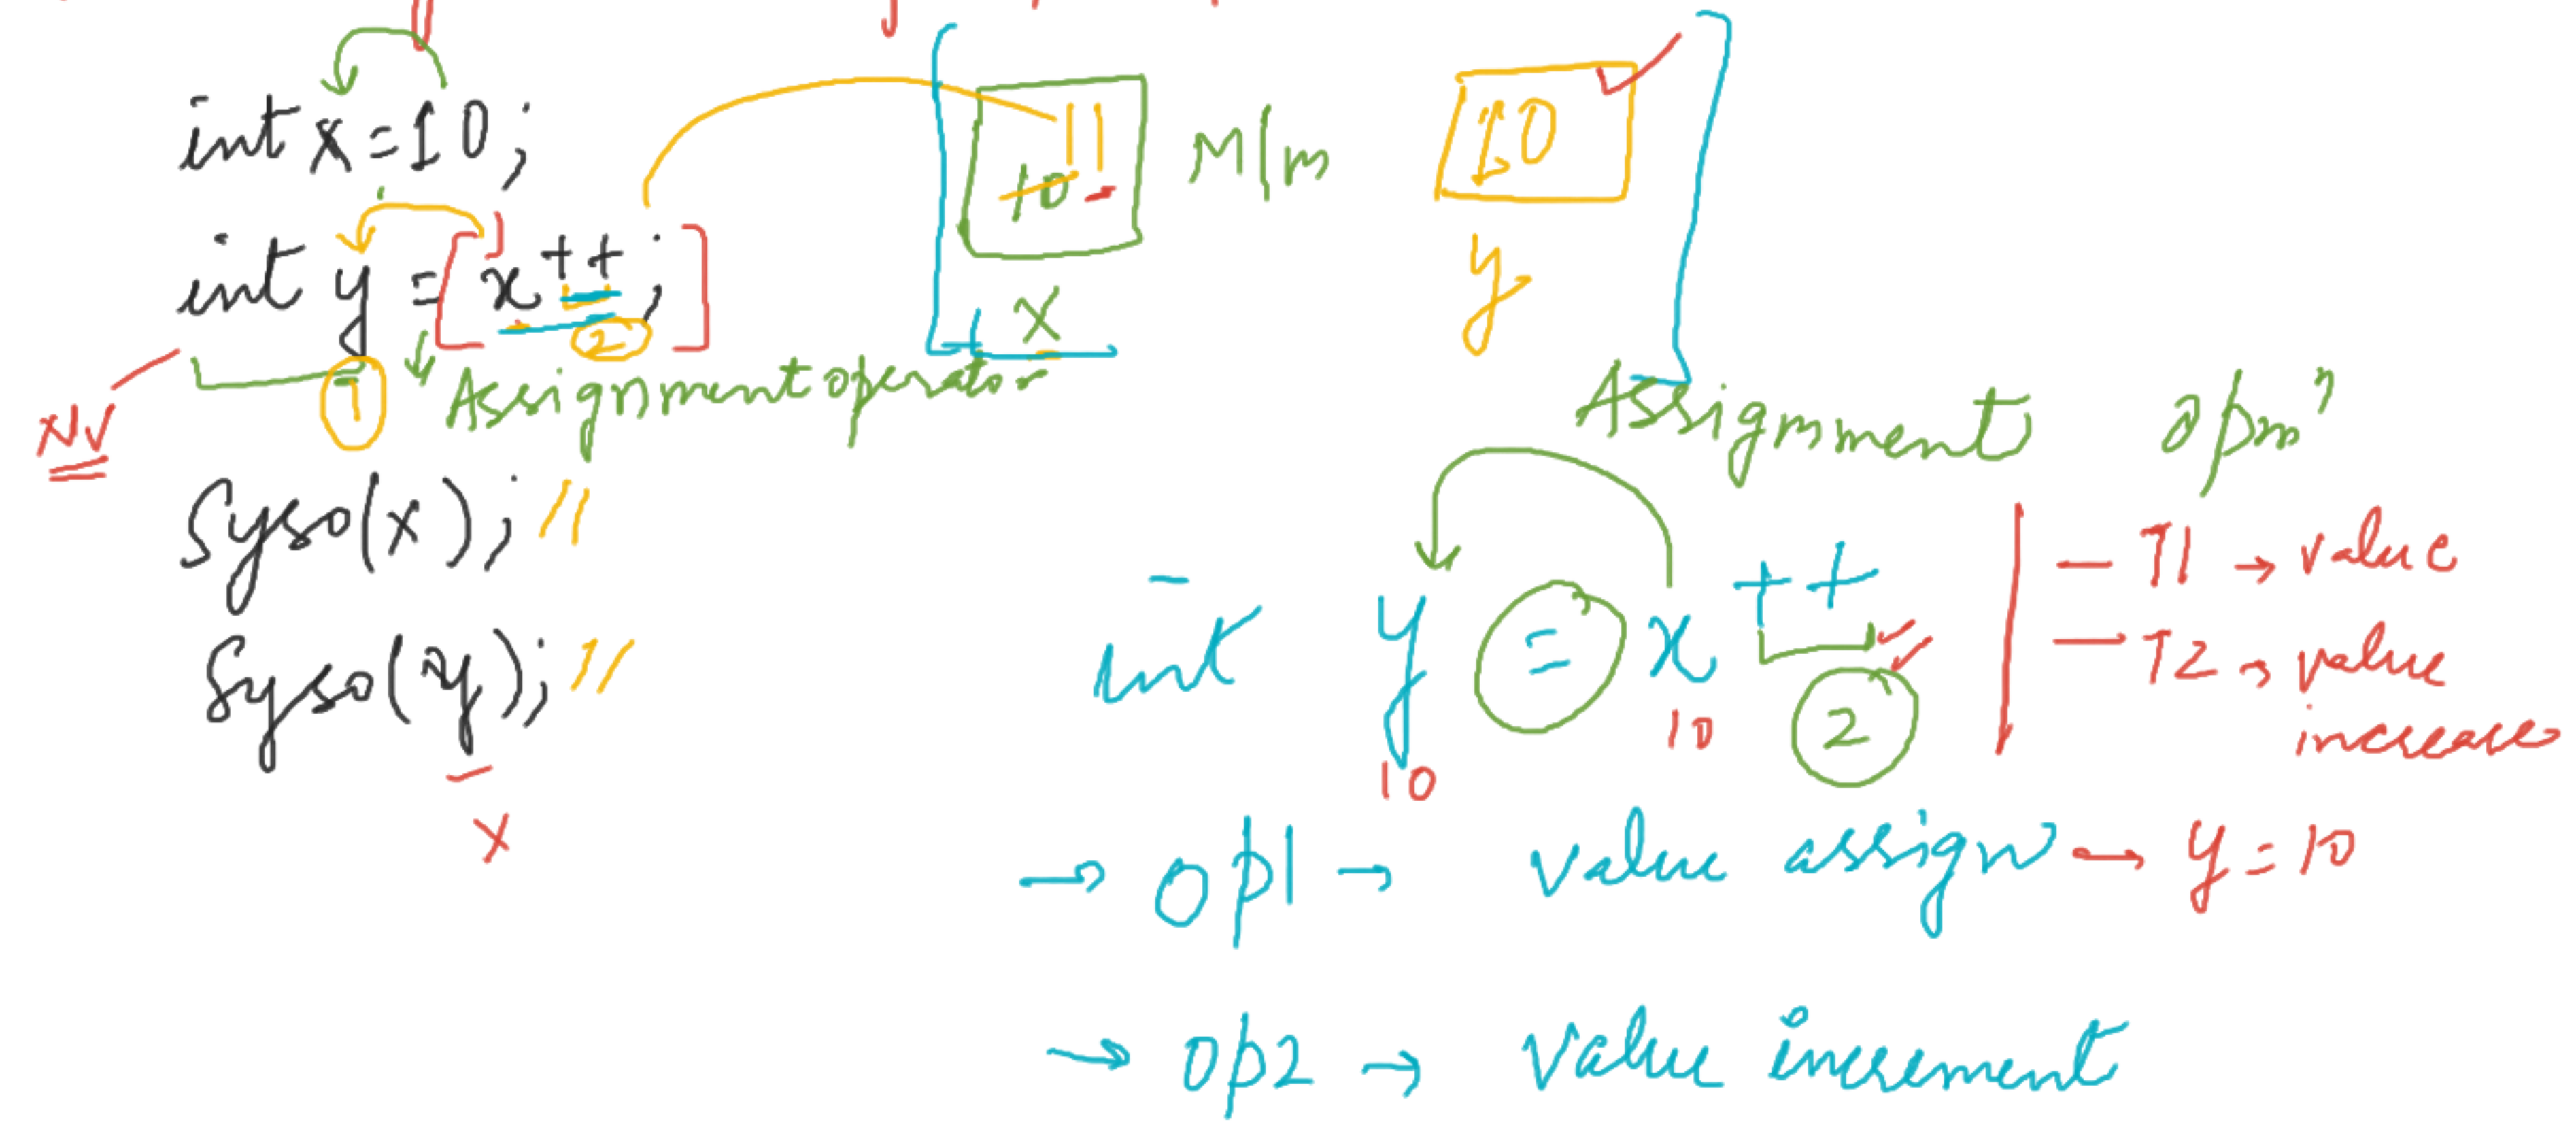 int x = 10;
int y = [x++;]
2
1
NV
Assignment operator
Syso(x); //
Syso(y); //
x
11
10
x
M/m
10
y
Assignment opmⁿ
int y = x ++
10
10
2
— T1 → value
— T2 → value
increase
→ op1 → value assign → y = 10
→ op2 → value increment